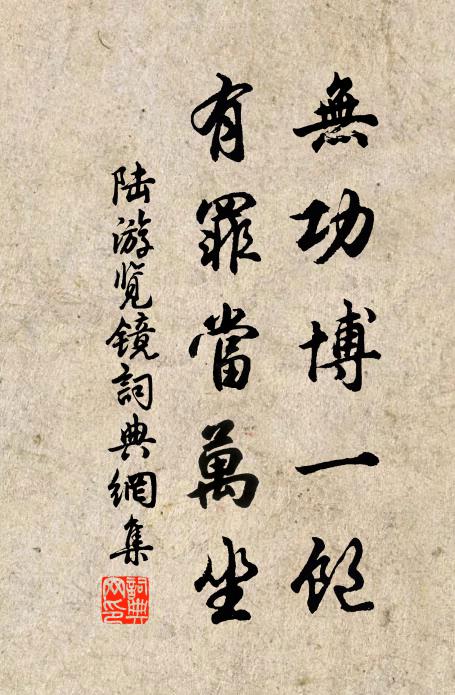 無功博一飽
有罪當萬坐
陆游览镜詞典網集
詞典